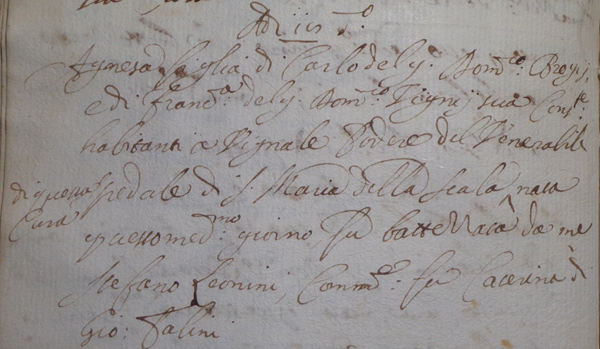 Adi iis d.o
Agnesa figlia di Carlo del q. Dom.co
e di Fran.ca del q. Dom.co sua Cons.te
habitanti a Vignale Podere del Venerabile
di questa Cura
spedale di S. Maria della Scala nata
questo med.mo giorno, fu battezzata da me
Stefano Leonini, Comm.e fu Caterina di
Gio: Falini.